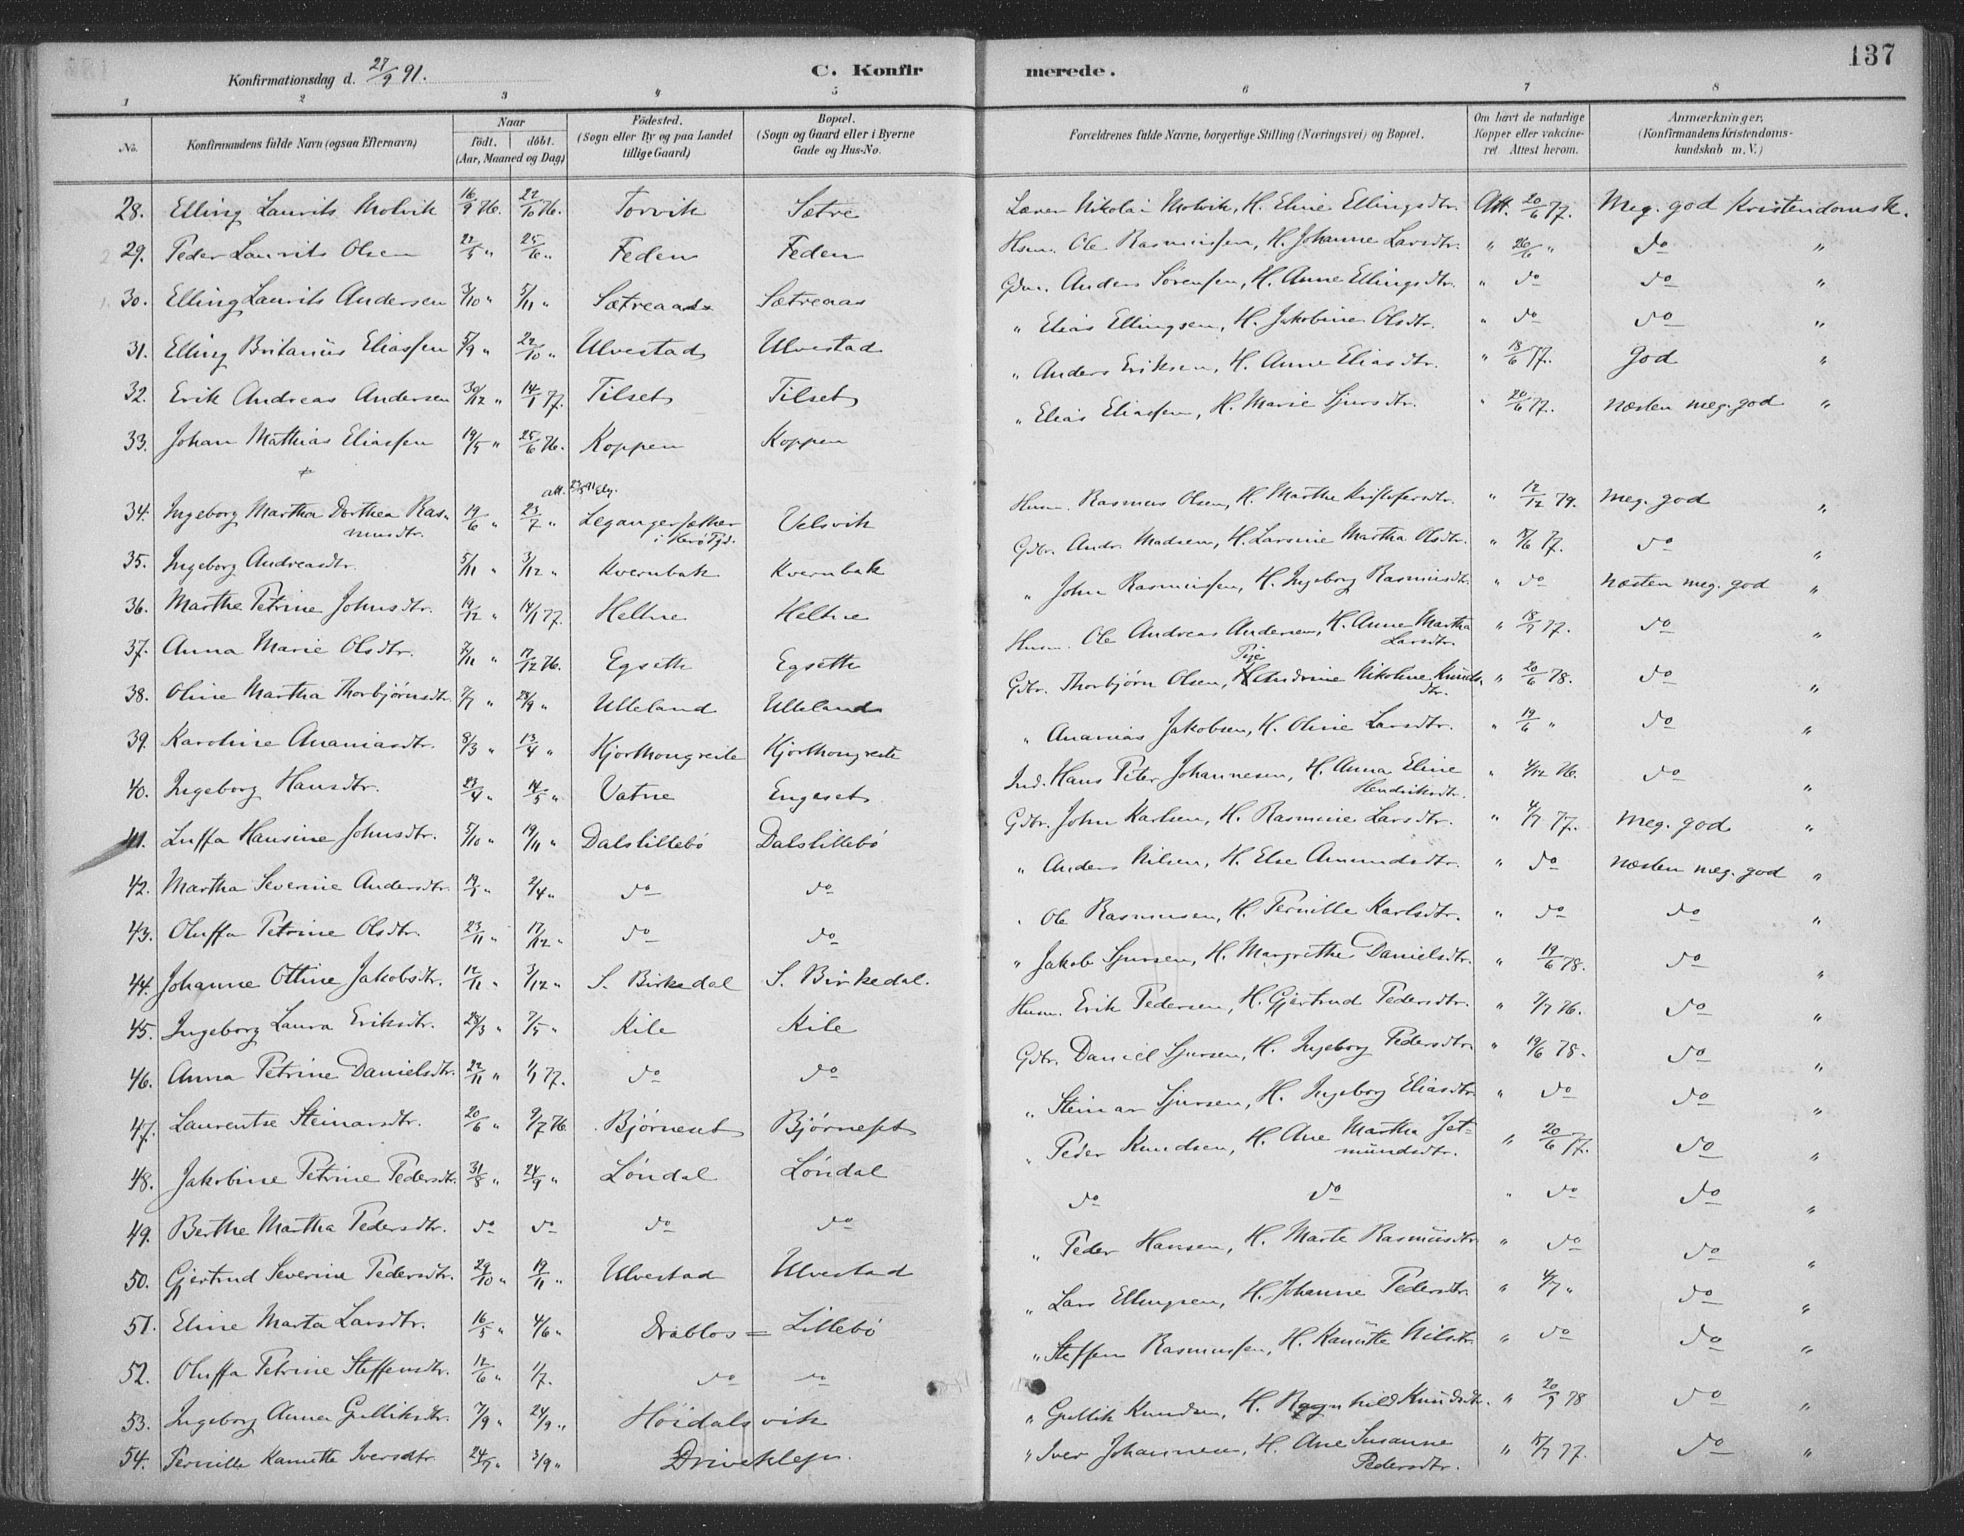 137
Konfirmationsdag d. 27/9 91. C. Konfir merede.
1 2 3 4 5 6 7 8
No. Konfirmandens fulde Navn (ogsaa Efternavn) Naar født. døbt. (Aar, Maaned og Dag) Fødested. (Sogn eller By og paa Landet tillige Gaard) Bopæl. (Sogn og Gaard eller i Byerne Gade og Hus-No. Forældrenes fulde Navne, borgerlige Stilling (Næringsvei) og Bopæl. Om havt de naturlige Kopper eller vakcineret Attest herom. Anmærkninger. (Konfirmandens Kristendomskundskab m. V.)
28. Elling Laurits Molvik 16/9 76. 22/10 76. Torvik Sætre Lærer Nikolai Molvik, H. Eline Ellingsdtr. Att. 20/6 77. Meg. god Kristendomsk.
29. Peder Laurits Olsen 22/5 " 25/6 " Feden Feden Hsm. Ole Rasmussen, H. Johanne Larsdtr. " 26/6 " do "
30. Elling Laurits Andersen 3/10 " 5/11 " Sætreaas Sætreaas Gdm. Anders Sørensen, H. Anne Ellingsdtr. " do do "
31. Elling Britanius Eliassen 5/9 " 22/10 " Ulvestad Ulvestad " Elias Ellingsen, H. Jakobine Olsdtr. " do do "
32. Erik Andreas Andersen 30/12 " 14/1 77. Tilset Tilset " Anders Eriksen, H. Anne Eliasdtr. " 18/6 77. God "
33. Johan Mathias Eliassen 19/5 " 25/6 76. Koppen Koppen " Elias Eliassen, H. Marie Sjursdtr. " 20/6 77. Næsten meg. god "
34. Ingeborg Martha Dorthea Rasmusdtr. 19/6 " 23/7 " Leganger sæther i Herø Pgd. Velsvik Husm. Rasmus Olsen, H. Marthe Kristofersdtr. " 12/12 79. Meg. god "
35. Ingeborg Andreasdtr. 5/11 " 3/12 " Kvernbak Kvernbak Gdbr. Andr. Madsen, H. Larsine Martha Olsdtr. " 18/6 77. do "
36. Marthe Petrine Johnsdtr. 19/12 " 14/1 77. Heltne Heltne " John Rasmussen, H. Ingeborg Rasmusdtr. " do Næsten meg. god "
37. Anna Marie Olsdtr. 7/11 " 17/12 76. Egseth Egseth Husm. Ole Andreas Andersen, H. Anne Martha Larsdtr. " 18/7 77. do "
38. Oline Martha Thorbjørnsdtr. 7/7 " 28/9 " Ulleland Ulleland Gdbr. Thorbjørn Olsen, Pige Andrine Nikoline Knudsdtr. " 20/6 78. do "
39. Karoline Ananiasdtr. 8/3 " 13/4 " Hjorthongreite Hjorthongreite " Ananias Jakobsen, H. Oline Larsdtr. " 19/6 " do "
40. Ingeborg Hansdtr. 23/4 " 14/5 " Vatne Engeset Ind. Hans Peter Johannesen, H. Anna Eline Hendriksdtr. " 4/12 76. do "
41. Luffa Hansine Johnsdtr. 5/10 " 19/11 " Dalslillebø Dalslillebø Gdbr. John Karlsen, H. Rasmine Larsdtr. " 4/7 77. Meg. god "
42. Martha Severine Andersdtr. 19/1 " 2/4 " do do " Anders Nilsen, H. Else Amundsdtr. " do Næsten meg. god "
43. Oluffa Petrine Olsdtr. 23/11 " 17/12 " do do " Ole Rasmusen, H. Pernille Karlsdtr. " do do "
44. Johanne Ottine Jakobsdtr. 12/11 " 3/12 " S. Birkedal S. Birkedal. " Jakob Sjursen, H. Margrethe Danielsdtr. " 19/6 78. do "
45. Ingeborg Laura Eriksdtr. 28/3 " 7/5 " Kile Kile Husm. Erik Pedersen, H. Gjertrud Pedersdtr. " 7/7 76. do "
46. Anna Petrine Danielsdtr. 22/11 " 1/1 77. do do Gdbr. Daniel Sjursen, H. Ingeborg Pedersdtr. " 19/6 78. do "
47. Laurentse Steinarsdtr. 20/6 " 9/7 76 Bjørneset Bjørneset " Steinar Sjursen, H. Ingeborg Eliasdtr. " do do "
48. Jakobine Petrine Pedersdtr. 31/8 " 24/9 " Løndal Løndal " Peder Knudsen, H. Ane Martha Jetmundsdtr. " 20/6 77. do "
49. Berthe Martha Pedersdtr. do do do do do do " do do "
50. Gjertrud Severine Pedersdtr. 29/10 " 19/11 " Ulvestad Ulvestad " Peder Hansen, H. Marte Rasmusdtr " do do "
51. Eline Marta Larsdtr. 16/5 " 4/6 " Drablos = Lillebø " Lars Ellingsen, H. Johanne Pedersdtr. " 4/7 " do "
52. Oluffa Petrine Steffensdtr. 12/6 " 1/7. do do " Steffen Rasmussen, H. Kanutte Nilsdtr. " do do "
53. Ingeborg Anna Gulliksdtr. 7/9 " 24/9 " Høidalsvik " Gullik Knudsen, H. Ragnhild Knudsdtr. " 20/9 78 do "
54. Pernille Kanutte Iversdtr. 24/7 " 3/9 " Driveklepn. " Iver Johannesen, H. Ane Susanne Pedersdtr. " 15/7 77. do "